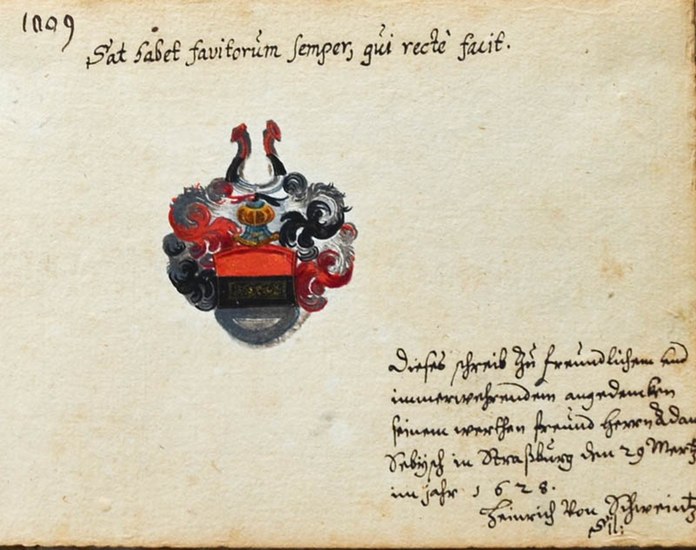 1809
Sat habet favitorum semper, qui rectè facit.
Dieses schreib Zu freundlichem und
immerwehrendem angedencken
seinem werthen freund Herrn Adam
Sebisch in Straßburg den 29 Mertz
im jahr 1628.
Heinrich Von Schweintz
Sil: